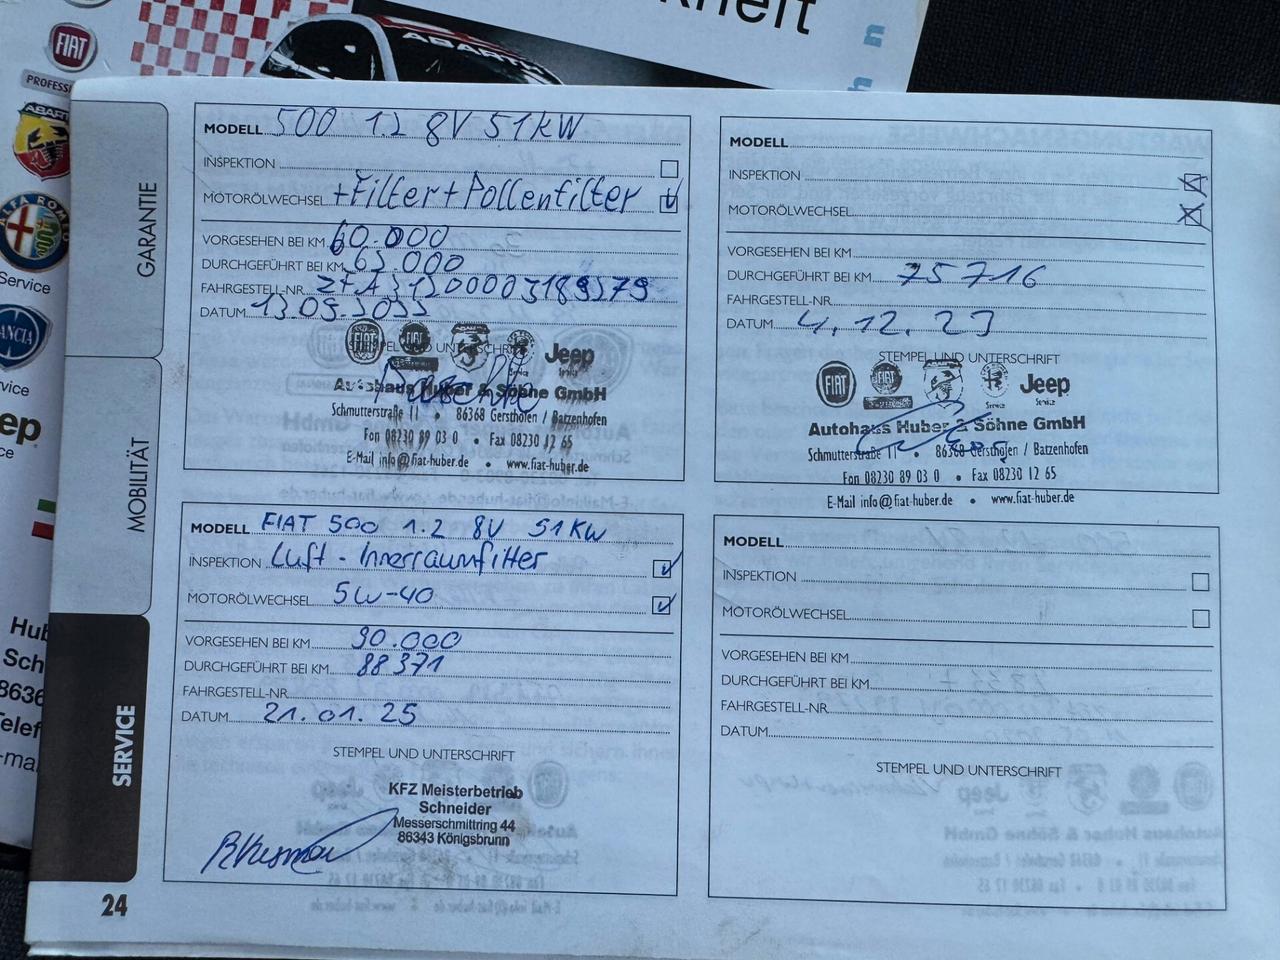 FIAT
PROFESSI
ABARTH
ABARTH
ALFA ROMEO
Service
LANCIA
GARANTIE
MOBILITÄT
SERVICE
MODELL 500 1.2 8V 51KW
INSPEKTION
MOTORÖLWECHSEL +Filter+Pollenfilter
VORGESEHEN BEI KM 60.000
DURCHGEFÜHRT BEI KM 63.000
FAHRGESTELL-NR.
DATUM
STEMPEL UND UNTERSCHRIFT
FIAT
Jeep
Service
Autohaus Huber & Söhne GmbH
Schmutterstraße 11 • 86368 Gersthofen / Batzenhofen
Fon 08230 89 03 0 • Fax 08230 12 65
E-Mail info@fiat-huber.de • www.fiat-huber.de
MODELL
INSPEKTION
MOTORÖLWECHSEL
VORGESEHEN BEI KM
DURCHGEFÜHRT BEI KM 75716
FAHRGESTELL-NR.
DATUM 4.12.23
STEMPEL UND UNTERSCHRIFT
FIAT
Jeep
Service
Service
Autohaus Huber & Söhne GmbH
Schmutterstraße 11 • 86368 Gersthofen / Batzenhofen
Fon 08230 89 03 0 • Fax 08230 12 65
E-Mail info@fiat-huber.de • www.fiat-huber.de
MODELL FIAT 500 1.2 8V 51KW
INSPEKTION Luft - Innerraumfilter
MOTORÖLWECHSEL 5W-40
VORGESEHEN BEI KM 90.000
DURCHGEFÜHRT BEI KM 88371
FAHRGESTELL-NR.
DATUM 21.01.25
STEMPEL UND UNTERSCHRIFT
KFZ Meisterbetrieb
Schneider
Messerschmittring 44
86343 Königsbrunn
MODELL
INSPEKTION
MOTORÖLWECHSEL
VORGESEHEN BEI KM
DURCHGEFÜHRT BEI KM
FAHRGESTELL-NR.
DATUM
STEMPEL UND UNTERSCHRIFT
24